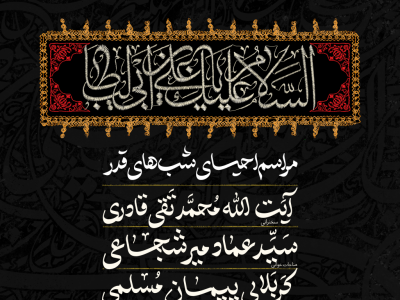 السلام علیك یا علي بن ابي طالب
مراسم احیای شب‌های قدر
آیَت الله مُحمَّد تَقی قادری
سخنرانی
سَیِّد عماد میرشجاعی
مناجات خوانی
کربلایی پیمان مُسلمی